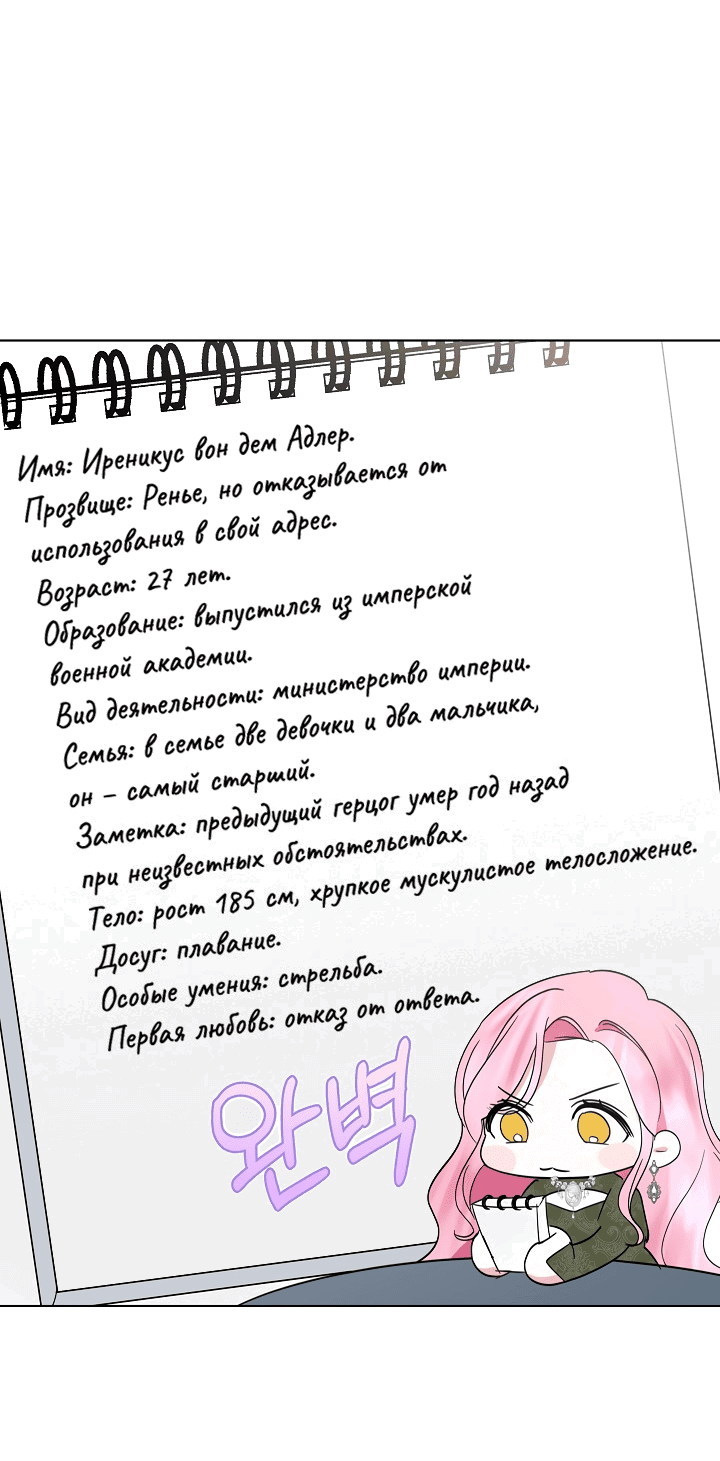 Имя: Иреникус вон дем Адлер.
Прозвище: Ренье, но отказывается от
использования в свой адрес.
Возраст: 27 лет.
Образование: выпустился из имперской
военной академии.
Вид деятельности: министерство империи.
Семья: в семье две девочки и два мальчика,
он – самый старший.
Заметка: предыдущий герцог умер год назад
при неизвестных обстоятельствах.
Тело: рост 185 см, хрупкое мускулистое телосложение.
Досуг: плавание.
Особые умения: стрельба.
Первая любовь: отказ от ответа.
완벽